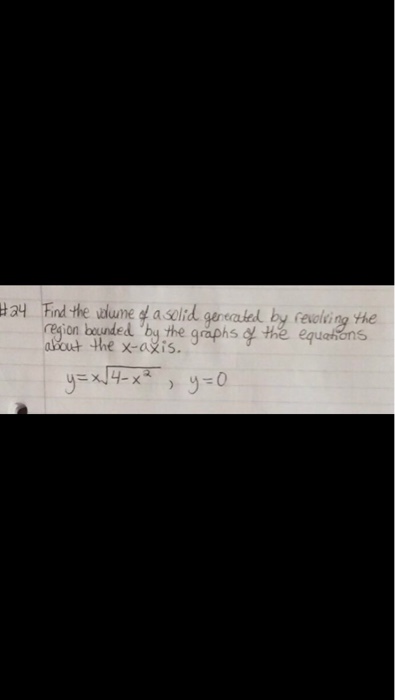 #24 Find the volume of a solid generated by revolving the
region bounded by the graphs of the equations
about the x-axis.
y=x√4-x² , y=0